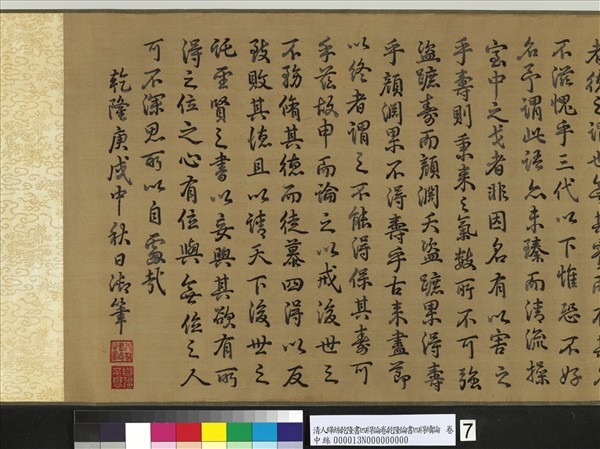 不滋愧乎三代以下惟恐不好
名予謂此語亦未臻而清流操
室中之戈者非因名有以害之
乎壽則秉来之氣數所不可強
盜蹠壽而顏淵夭盜蹠果得壽
乎顏淵果不得壽乎古来盡節
以終者謂之不能得保其壽可
乎茲故申而論之以戒後世之
不務脩其德而徒慕四得以反
致敗其德且以請天下後世之
託聖賢之書以妄興其欲有所
得之位之心有位與無位之人
可不深思所以自處哉
乾隆庚戌中秋日御筆
清人緙絲乾隆書四得論卷乾隆論書四得續論 卷
中絲 000013N000000000
7